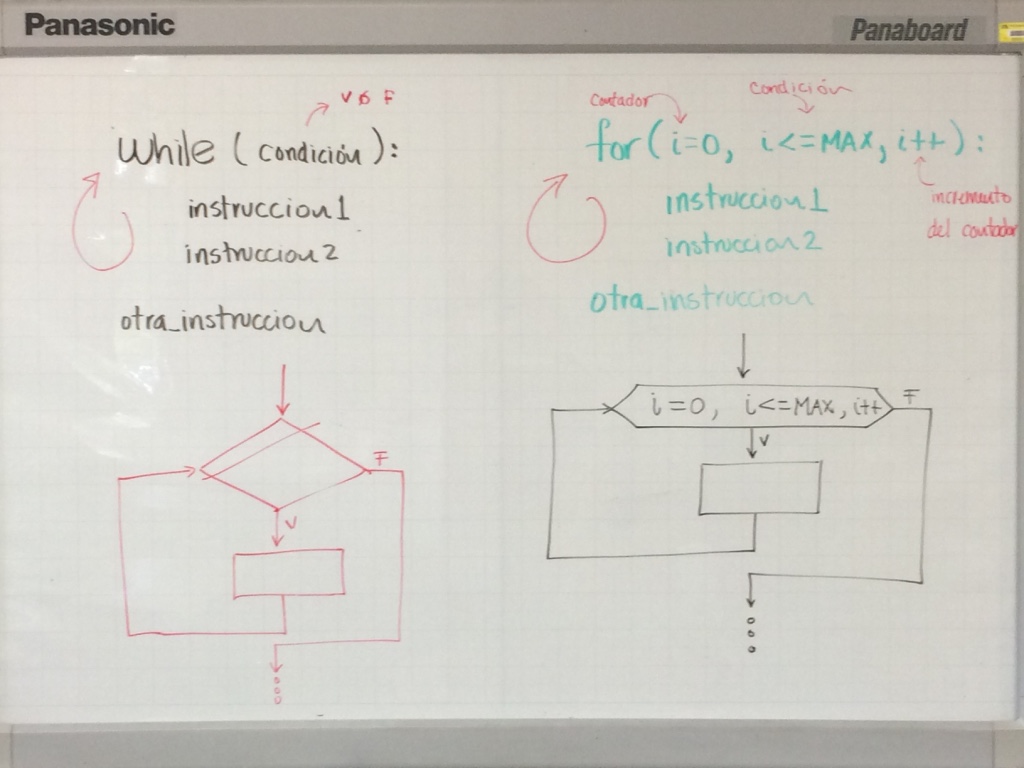 Panasonic
Panaboard
V ó F
while (condición):
instruccion1
instruccion2
otra_instruccion
F
V
Contador
condición
for(i=0, i<=MAX, i++):
instruccion1
incremento
del contador
instruccion2
otra_instruccion
i=0, i<=MAX, i++
F
V